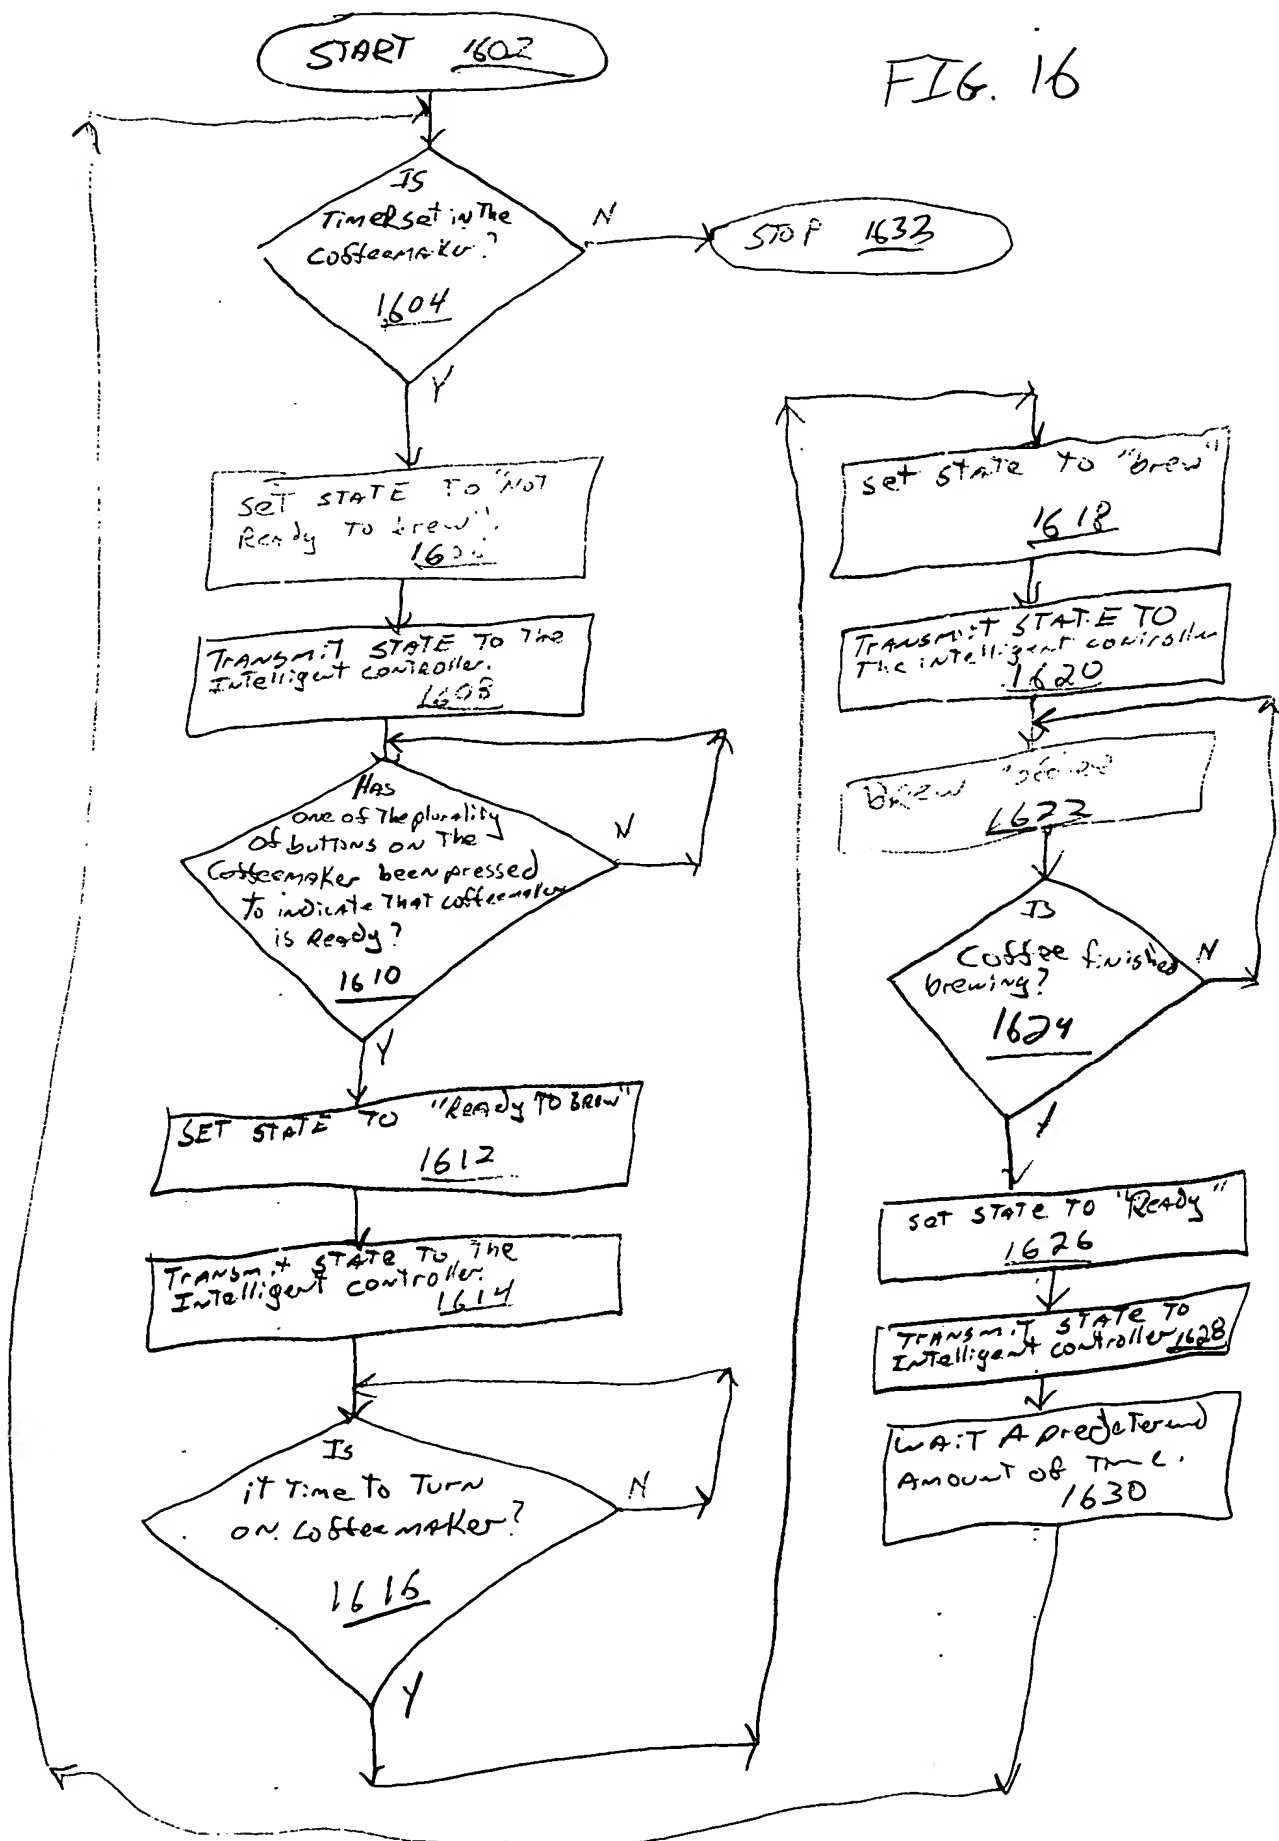 START 1602
FIG. 16
IS
Timer set in The
Coffeemaker?
1604
N
STOP 1633
Y
SET STATE TO "NOT
Ready To brew".
TRANSMIT STATE TO The
Intelligent controller.
1608
HAS
one of The plurality
of buttons on The
Coffeemaker been pressed
To indicate That coffeemaker
is Ready?
1610
N
Y
SET STATE TO "Ready TO BREW"
1612
TRANSMIT STATE TO The
Intelligent controller.
1614
Is
it Time to Turn
ON Coffeemaker?
1616
N
Y
set STATE TO "brew"
1618
TRANSMIT STATE TO
The intelligent controller
1620
Brew coffee
1622
IS
Coffee finished
brewing?
1624
N
Y
set STATE TO "Ready"
1626
TRANSMIT STATE TO
Intelligent controller 1628
WAIT A predetermind
AMOUNT OF Time.
1630